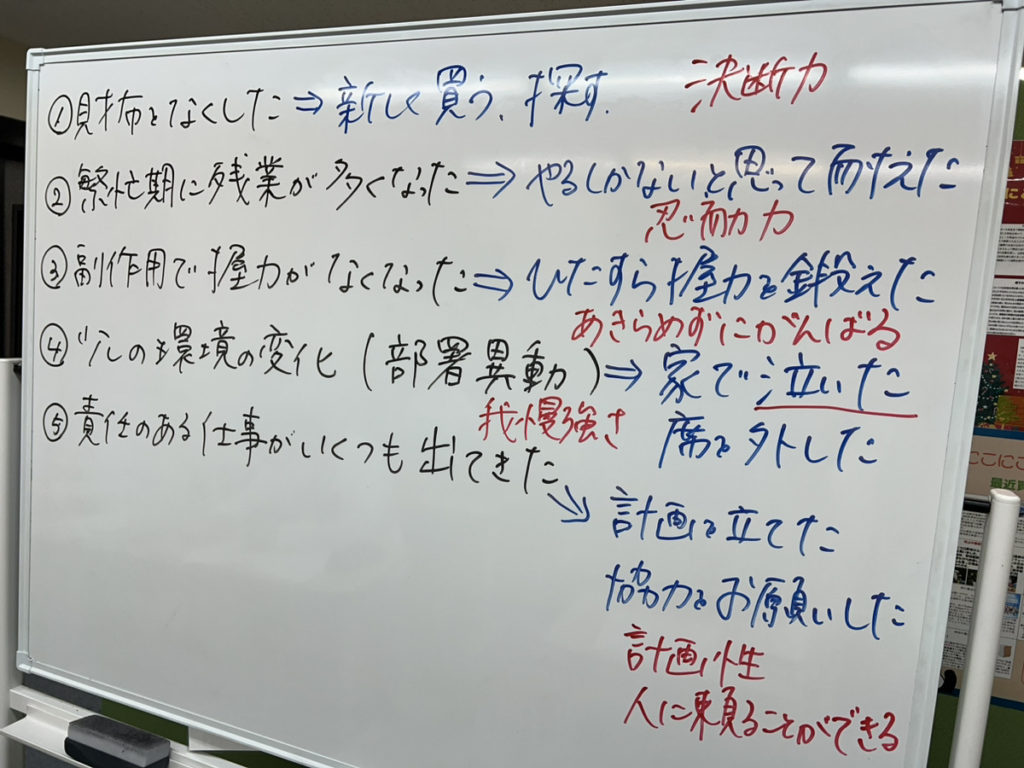 ①財布をなくした⇒新しく買う、探す. 決断力
②繁忙期に残業が多くなった⇒やるしかないと思って耐えた
忍耐力
③副作用で握力がなくなった⇒ひたすら握力を鍛えた
あきらめずにがんばる
④の環境の変化(部署異動)⇒家で泣いた
我慢強さ
席を外した
⑤責任のある仕事がいくつも出てきた⇒計画を立てた
協力をお願いした
計画性
人に頼ることができる
ここにこ
最近買